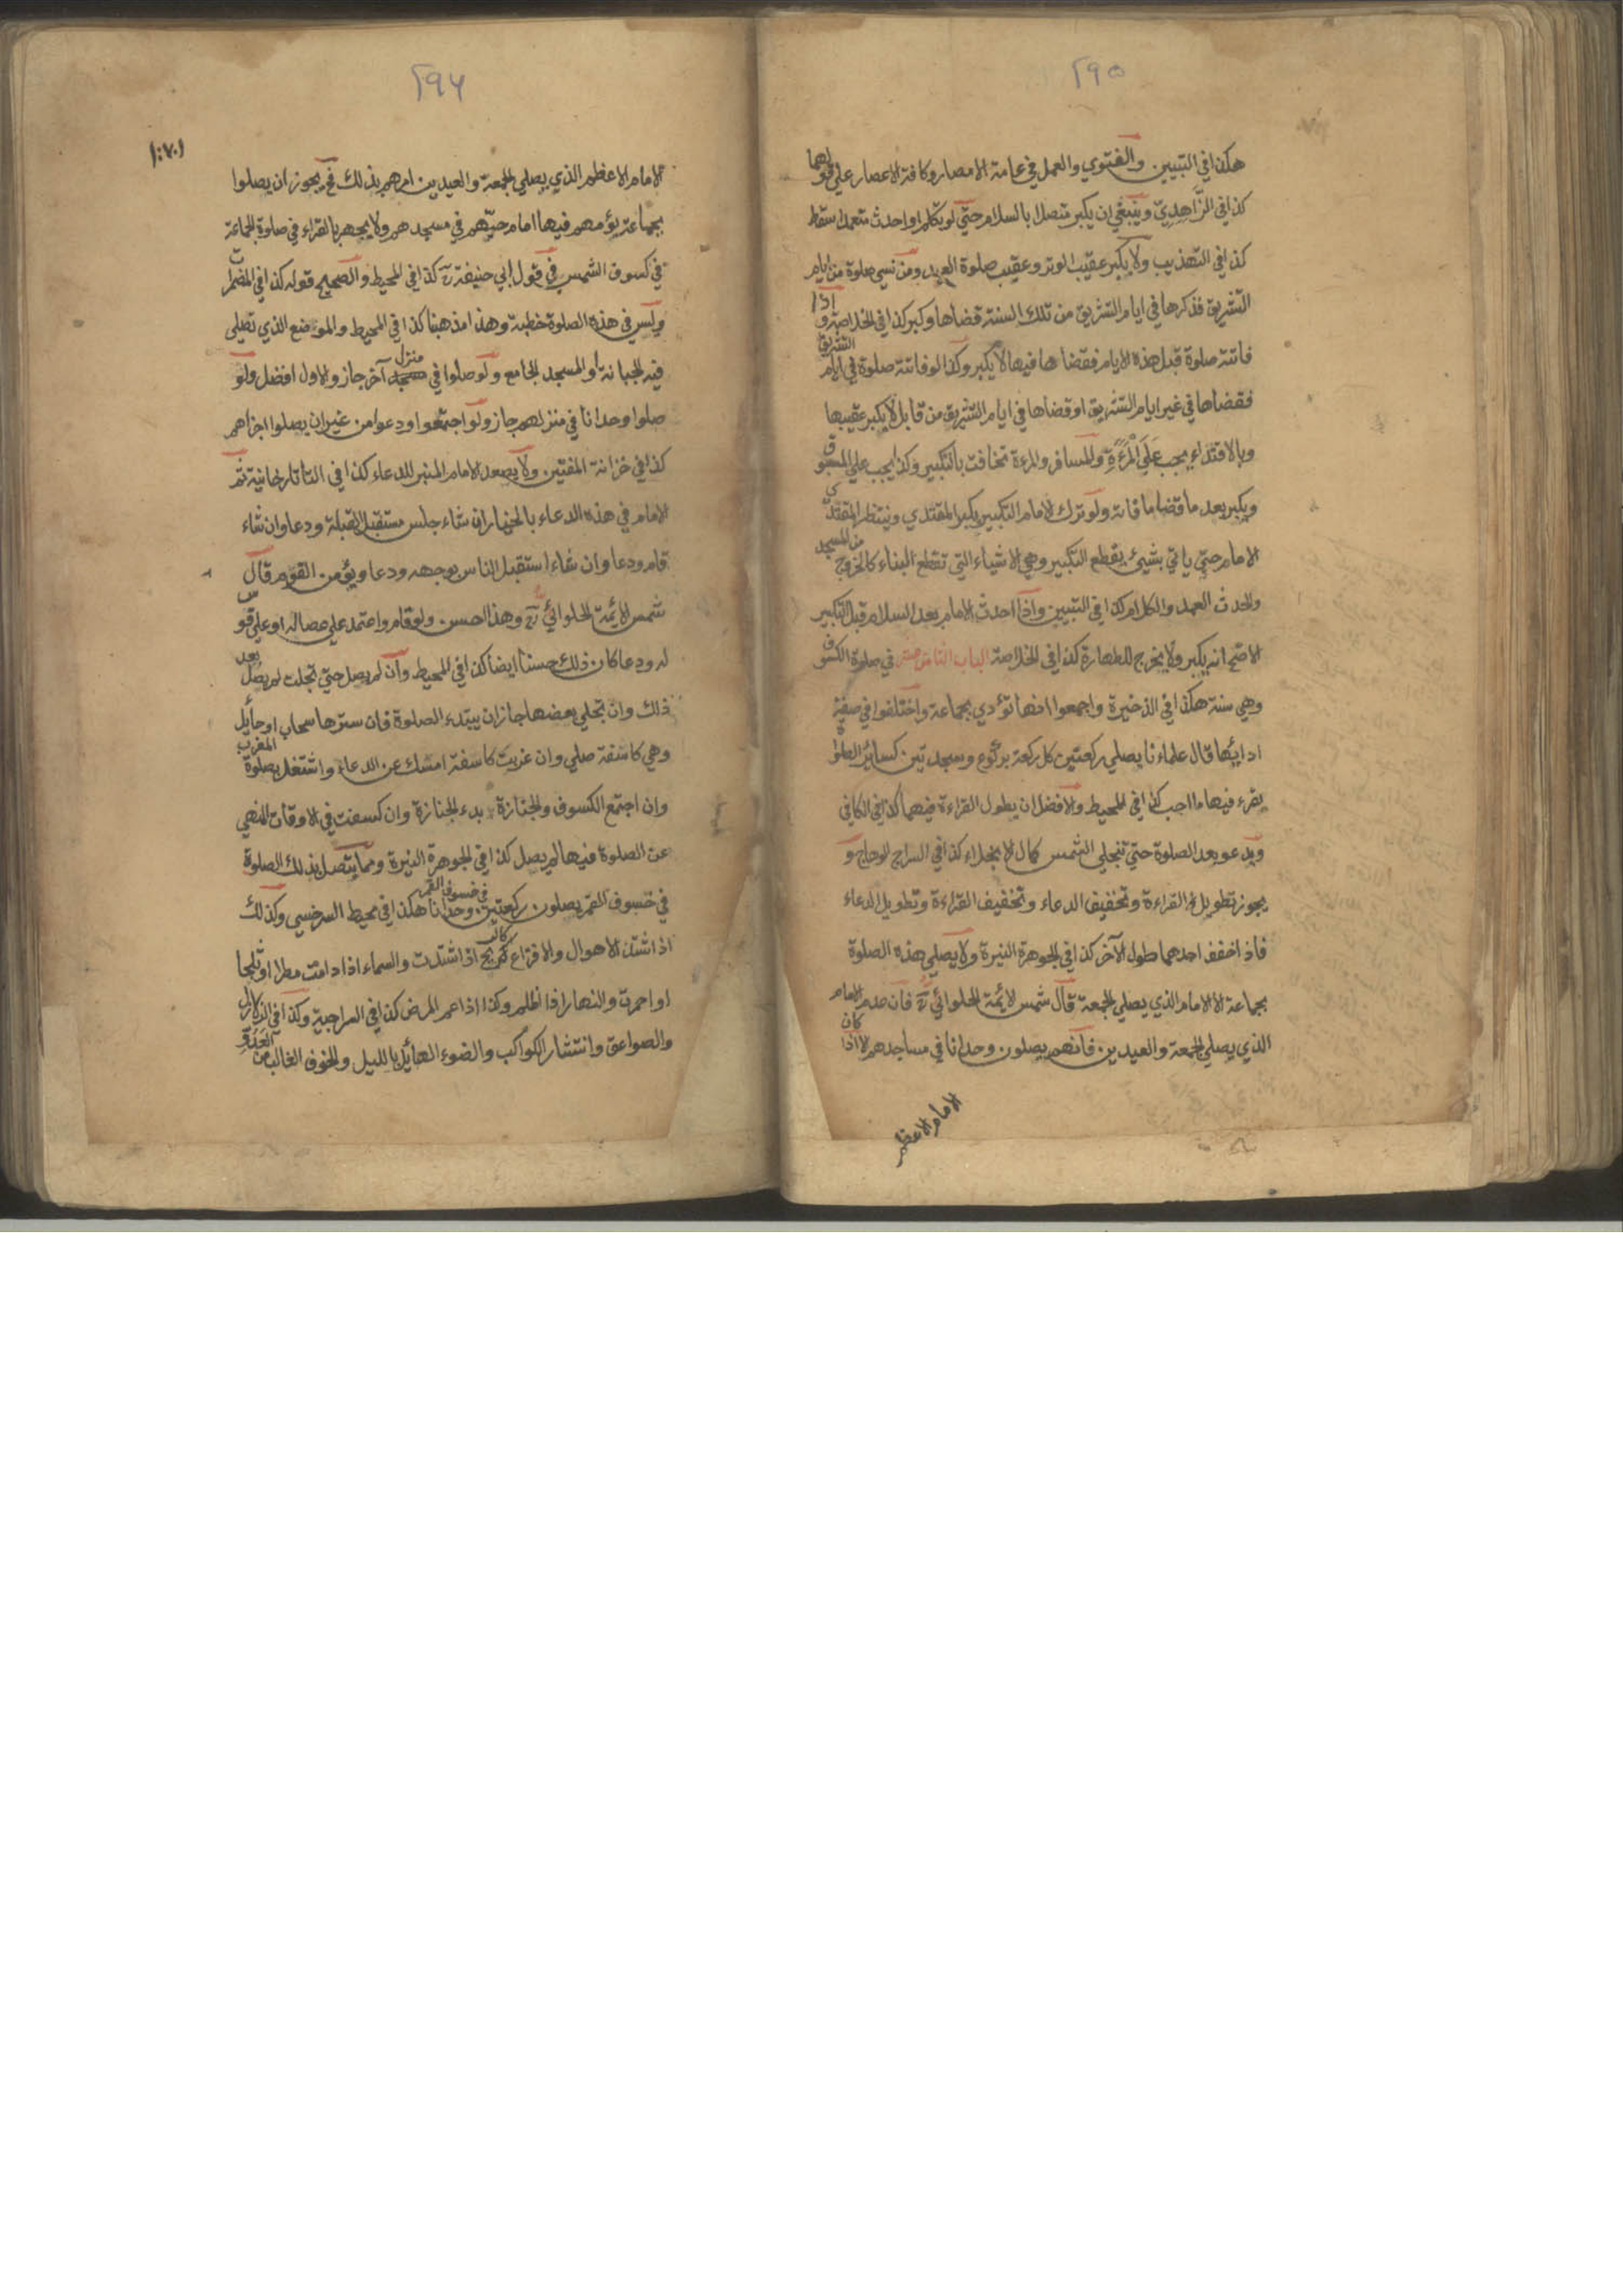 ٢٩٥
هكذا في التبيين والفتوي والعمل في عامة الامصار وكافة الاعصار علي قولهما
كذا في الزاهدي وينبغي ان يكبر متصلا بالسلام حتي لو تكلم او احدث متعمدا سقط
كذا في التهذيب ولا يكبر عقيب الوتر وعقيب صلوة العيد ومن نسي صلوة من ايام
التشريق فذكرها في ايام التشريق من تلك السنة قضاها وكبر كذا في الخلاصة واذا
فاتته صلوة قبل هذه الايام فقضاها فيها لا يكبر وكذا لو فاتته صلوة في ايام التشريق
فقضاها في غير ايام التشريق او قضاها في ايام التشريق من قابل لا يكبر عقيبها
وبالاقتداء يجب عَلَي الْمَرْءَةِ والمسافر والمرءة تخافت بالتكبير وكذا يجب علي المسبوق
ويكبر بعد ما قضا ما فاته ولو ترك الامام التكبير يكبر المقتدي وينتظر المقتدي
الامام حتي ياتي بشيئ يقطع التكبير وهي الاشياء التي تقطع البناء كالخروج من المسجد
والحدث العمد والكلام كذا في التبيين واذا احدث الامام بعد السلام قبل التكبير
الاصح انه يكبر ولا يخرج للطهارة كذا في الخلاصة الباب الثامن عشر في صلوة الكسوف
وهي سنة هكذا في الذخيرة واجمعوا انها تؤدي بجماعة واختلفوا في صفة
ادايئها قال علماءنا يصلي ركعتين كل ركعة بركوع وسجدتين كسائر الصلوة
يقرء فيها ما احب كذا في المحيط والافضل ان يطول القراءة فيهما كذا في الكافي
ويدعو بعد الصلوة حتي تنجلي الشمس كمال الانجلاء كذا في السراج الوهاج و
يجوز تطويل القراءة وتخفيف الدعاء وتخفيف القراءة وتطويل الدعاء
فاذا خفف احدهما طول الآخر كذا في الجوهرة النيرة ولا يصلي هذه الصلوة
بجماعة الا الامام الذي يصلي الجمعة قال شمس الايمة الحلوائي رح فان عدم الامام
الذي يصلي الجمعة والعيدين فانهم يصلون وحدانا في مساجدهم الا اذا كان
الامام الاعظم
٢٩٦
الامام الاعظم الذي يصلي الجمعة والعيدين امرهم بذلك فح يجوز ان يصلوا
بجماعة يؤمهم فيها امام حيهم في مسجدهم ولا يجهر بالقراء في صلوة الجماعة
في كسوف الشمس في قول ابي حنيفة رح كذا في المحيط والصحيح قوله كذا في المضمرات
وليس في هذه الصلوة خطبة وهذا مذهبنا كذا في المحيط والموضع الذي تصلي
فيه الجبانة او المسجد الجامع ولو صلوا في منزل آخر جاز والاول افضل ولو
صلوا وحدانا في منزلهم جاز ولو اجتمعوا ودعوا من غير ان يصلوا اجزاهم
كذا في خزانة المفتين ولا يصعد الامام المنبر للدعاء كذا في التاتارخانية ثم
الامام في هذه الدعاء بالخيار ان شاء جلس مستقبل القبلة ودعا وان شاء
قام ودعا وان شاء استقبل الناس بوجهه ودعا ويؤمن القوم قال
شمس الايمة الحلوائي رح وهذا احسن ولو قام واعتمد علي عصا له او علي قوس
له ودعا كان ذلك حسنا ايضا كذا في المحيط وان لم يصل حتي تجلت لم يصل بعد
ذلك وان تجلي بعضها جاز ان يبتدء الصلوة فان سترها سحاب او حايل
وهي كاسفة صلي وان غربت كاسفة امسك عن الدعاء واشتغل بصلوة المغرب
وان اجتمع الكسوف والجنازة بدء بالجنازة وان كسفت في الاوقات المنهي
عن الصلوة فيها لم يصل كذا في الجوهرة النيرة ومما يتصل بذلك الصلوة
في خسوف القمر يصلون ركعتين في خسوف القمر وحدانا هكذا في محيط السرخسي وكذلك
اذا اشتد الاهوال والافزاع كالريح اذا اشتدت والسماء اذا دامت مطرا او ثلجا
او احمرت والنهار اذا اظلم وكذا اذا عم المرض كذا في السراجية وكذا في الزلازل
والصواعق وانتشار الكواكب والضوء الهائل بالليل والخوف الغالب من العدو